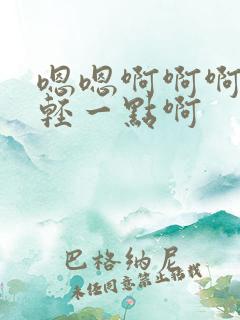 嗯嗯啊啊啊
輕一點啊
巴格纳尼
未经同意禁止转载